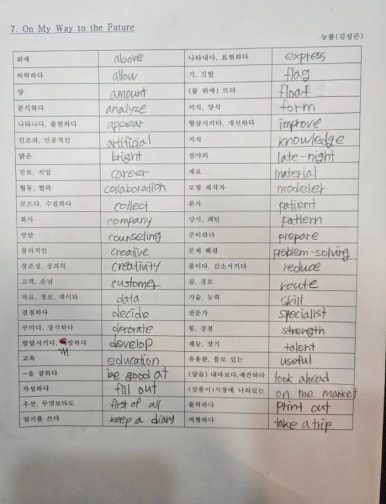 7. On My Way to the Future
능률(김성곤)
위에 above 나타내다, 표현하다 express
허락하다 allow 기, 깃발 flag
양 amount (물 위에) 뜨다 float
분석하다 analyze 서식, 양식 form
나타나다, 출현하다 appear 향상시키다, 개선하다 improve
인조의, 인공적인 artificial 지식 knowledge
밝은 bright 심야의 late-night
진로, 직업 career 재료 material
협동, 협력 collaboration 모델 제작자 modeler
모으다, 수집하다 collect 환자 patient
회사 company 양식, 패턴 pattern
상담 counseling 준비하다 prepare
창의적인 creative 문제 해결 problem-solving
창조성, 창의력 creativity 줄이다, 감소시키다 reduce
고객, 손님 customer 길, 경로 route
자료, 정보, 데이터 data 기술, 능력 skill
결정하다 decide 전문가 specialist
꾸미다, 장식하다 decorate 힘, 강점 strength
발달시키다, 발하다 develop 재능, 장기 talent
교육 education 유용한, 쓸모 있는 useful
~을 잘하다 be good at (앞을) 내다보다, 예견하다 look ahead
작성하다 fill out (상품이)시장에 나와있는 on the market
우선, 무엇보다도 first of all 출력하다 print out
일기를 쓰다 keep a diary 여행하다 take a trip